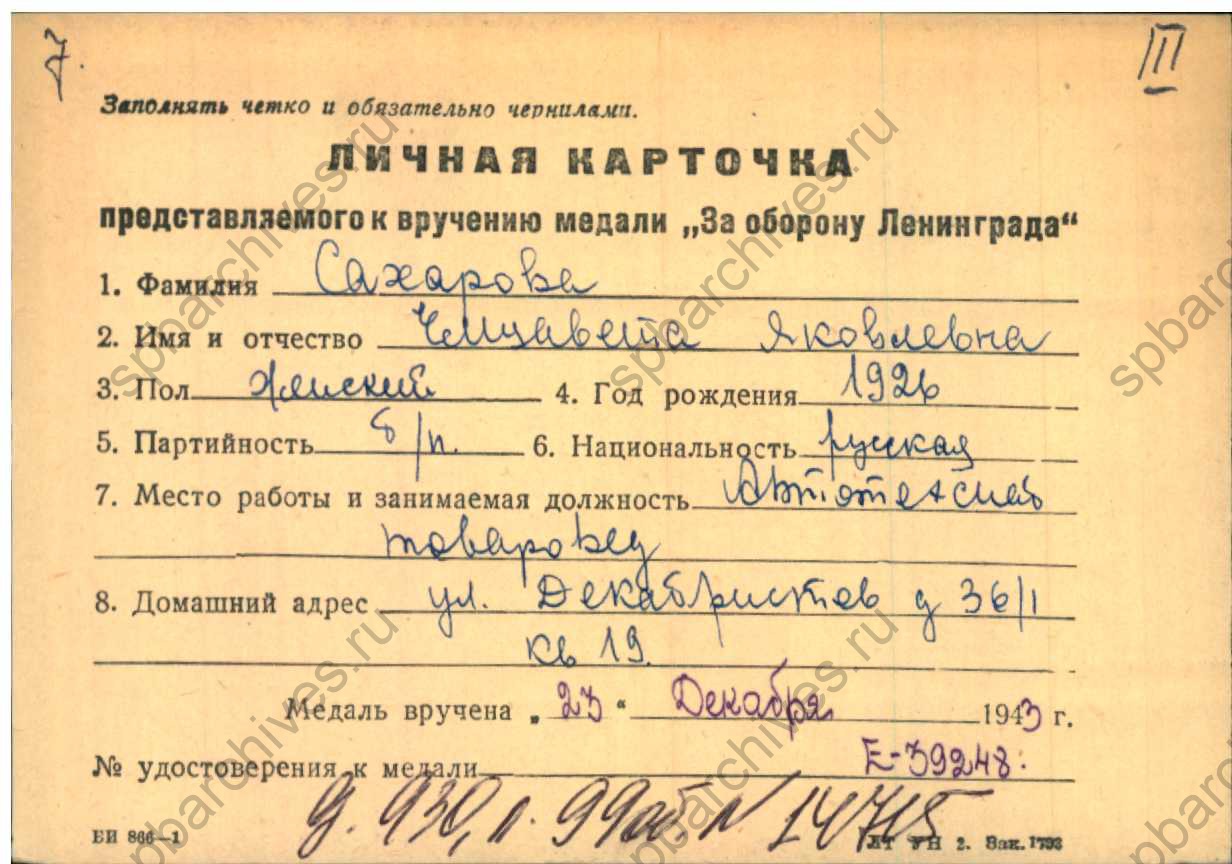 7.
III
Заполнять четко и обязательно чернилами.
ЛИЧНАЯ КАРТОЧКА
представляемого к вручению медали „За оборону Ленинграда“
1. Фамилия Сахарова
2. Имя и отчество Елизавета Яковлевна
3. Пол Женский 4. Год рождения 1926
5. Партийность б/п. 6. Национальность русская
7. Место работы и занимаемая должность
товаровед
8. Домашний адрес ул. Декабристов д 36/1
кв 19.
Медаль вручена „23“ Декабря 1943 г.
№ удостоверения к медали Е-39248.
д. 930, л. 99об N 14715
БИ 866—1
ЛТ УН 2. Зак. 1793
spbarchives.ru